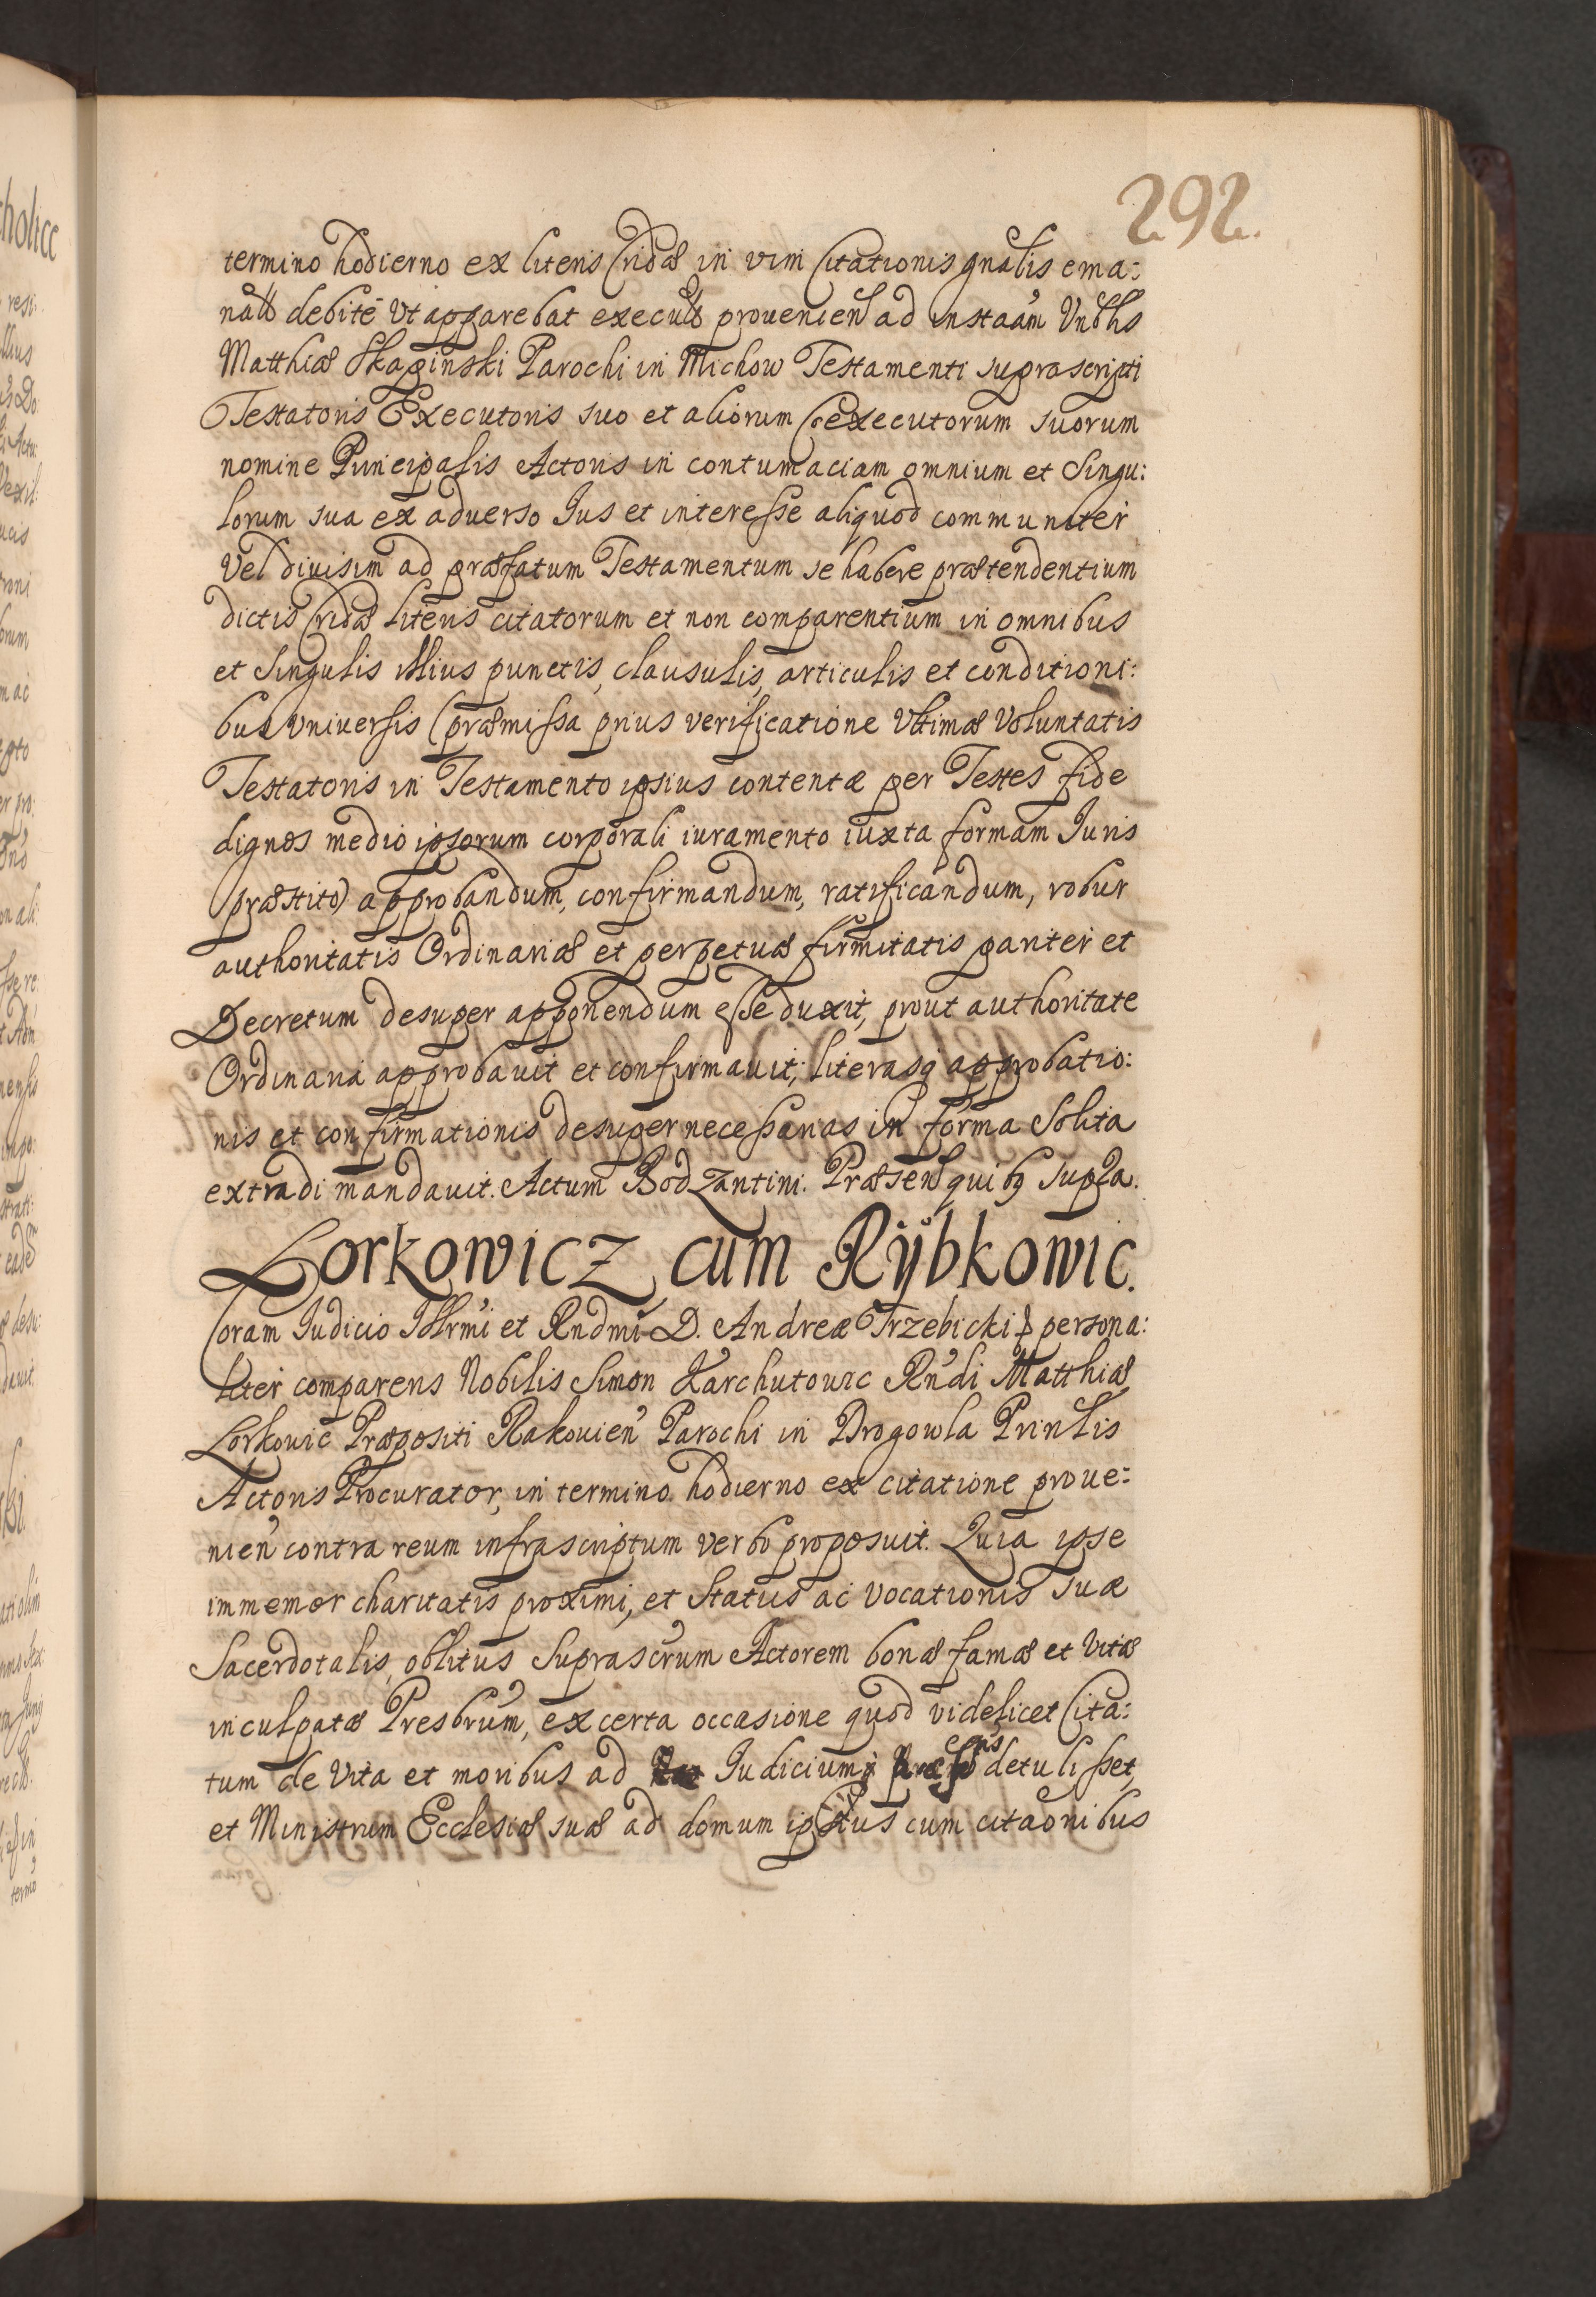 292.
termino hodierno ex literis Cridæ in vim Citationis gnalis ema:
debite Vt apparebat prouenien ad instaam Vnblis
Matthiæ Skapinski Parochi in Michow Testamenti suprascripti
Testatoris Executoris suo et aliorum Coexecutorum suorum
nomine Principalis Actoris in contumaciam omnium et Singu:
lorum sua ex aduerso Jus et interesse aliquod communiter
Vel diuisim ad præfatum Testamentum se habere prætendentium
dictis Cridæ literis citatorum et non comparentium in omnibus
et Singulis illius punctis, clausulis, articulis et conditioni:
bus Vniuersis (præmissa prius verificatione Vltimæ Voluntatis
Testatoris in Testamento ipsius contentæ per Testes fide
dignos medio ipsorum corporali iuramento iuxta formam Juris
præstito) approbandum, confirmandum, ratificandum, robur
authoritatis Ordinariæ et perpetuæ firmitatis pariter et
Decretum desuper apponendum esse duxit, prout authoritate
Ordinaria approbauit et confirmauit, literasq approbatio:
nis et confirmationis desuper necessarias in forma Solita
extradi mandauit. Actum Bodzantini. Præsen quibq supra.
Lorkowicz cum Rÿbkowic.
Coram Judicio Illrmi et Rndmi D. Andreæ Trzebicki persona:
liter comparens Nobilis Simon Karchutowic Rndi Matthiæ
Lorkowic Præpositi Rakouien Parochi in Drogowla Prinlis
Actoris Procurator, in termino hodierno ex citatione proue:
nien contra reum infrascriptum verbo proposuit. Quia ipse
immemor charitatis proximi, et Status ac Vocationis suæ
Sacerdotalis, oblitus Suprascrum Actorem bonæ famæ et Vitæ
inculpatæ Presbrum, ex certa occasione quod videlicet Cita:
tum de Vita et moribus ad Judicium detulisset,
et Ministrum Ecclesiæ suæ ad domum cum citaonibus